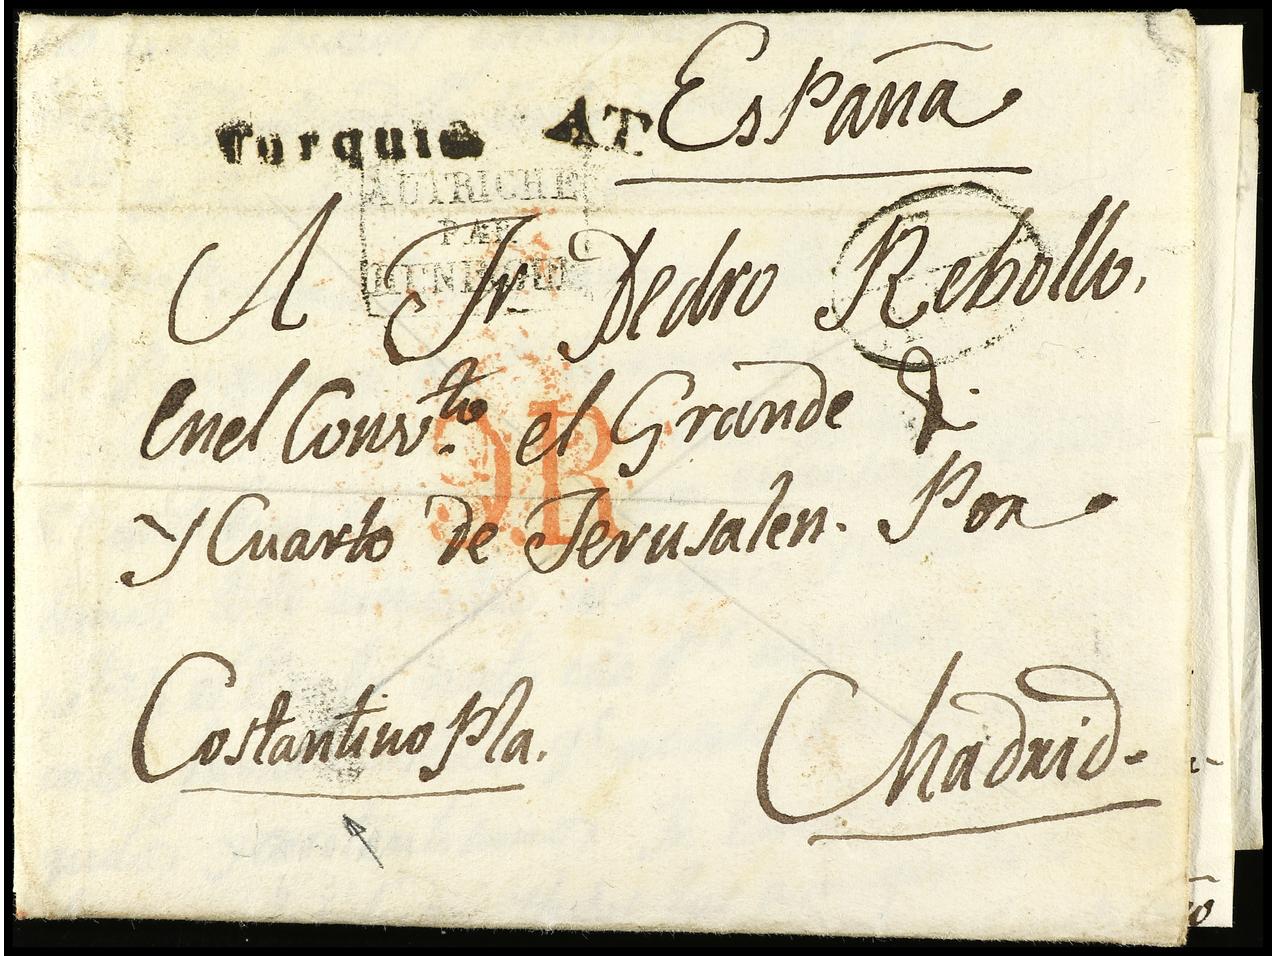 España
Turquia AT
AUTRICHE
PAR
A Fr. Pedro Rebollo,
en el Convto. el Grande
y Cuarto de Jerusalen. Por
9R
CostantinoPla.
Madrid.